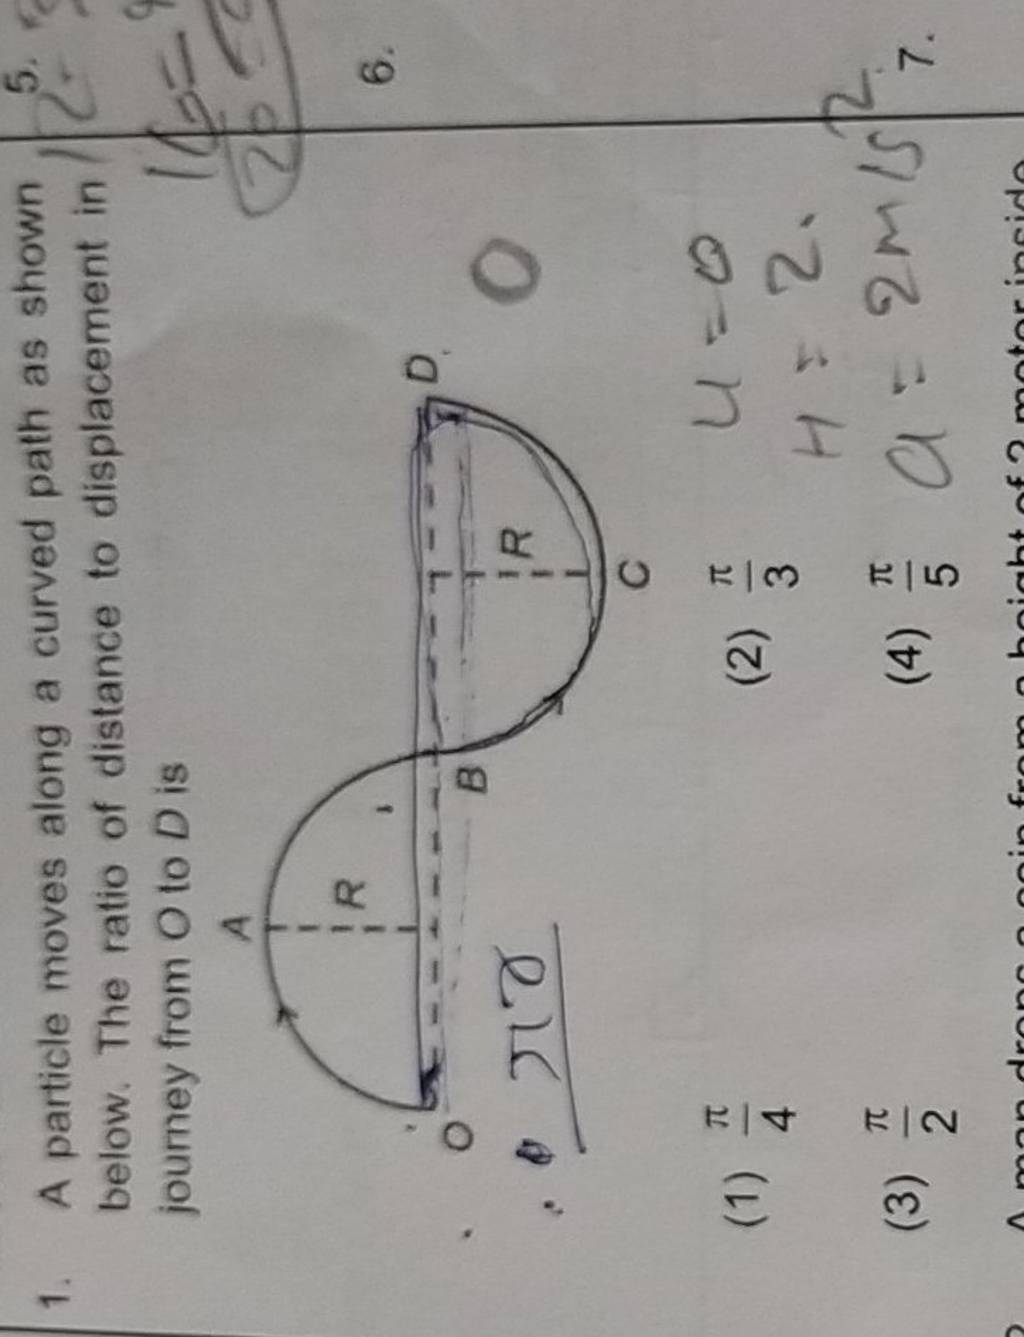 1. A particle moves along a curved path as shown
below. The ratio of distance to displacement in
journey from O to D is
A
R
O
B
R
D
C
πr
O
(1) π/4
(2) π/3
(3) π/2
(4) π/5
u = 0
H = 2.
a = 2m/s²
5.
12.
6.
7.
A man drops a coin from a height of 2 meter inside